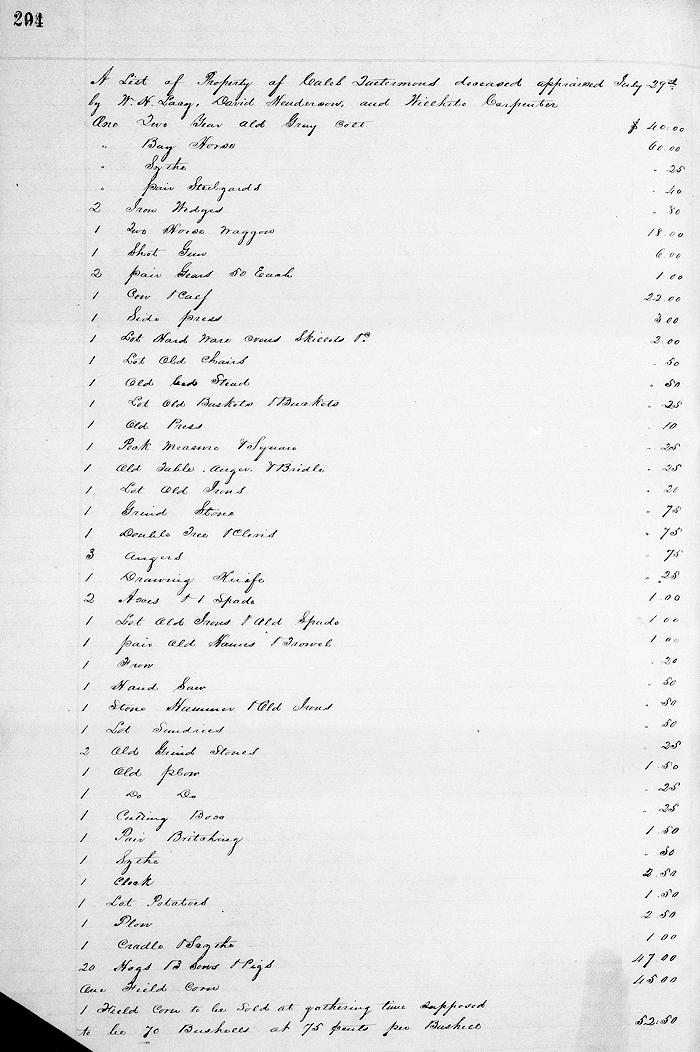 294
A List of Property of Caleb Tuetermons deceased appraised July 29th
by W. H. Lacy, David Henderson, and Willhite Carpenter
One Two Year Old Gray Colt $ 40.00
" Bay Horse 60.00
" Sythe .25
" pair Steelyards .40
2 Iron Wedges .80
1 Two Horse Waggon 18.00
1 Shot Gun 6.00
2 pair Gears 50 Each 1.00
1 Cow & Calf 22.00
1 Side press 3.00
1 Lot Hard Ware ovens Skillets &c 2.00
1 Lot Old Chairs .50
1 Old bed Stead .50
1 Lot Old Baskets & Buckets .25
1 Old Press .10
1 Peck Measure & Square .25
1 Old Table. Auger. & Bridle .25
1 Lot Old Irons .20
1 Grind Stone .75
1 Double Tree & Clevis .75
3 Augers .75
1 Drawing Knife .25
2 Axes & 1 Spade 1.00
1 Lot Old Irons & Old Spade 1.00
1 pair Old Hames & Trowel 1.00
1 Frow .20
1 Hand Saw .50
1 Stone Hammer & Old Irons .50
1 Lot Sundries .50
2 Old Grind Stones .25
1 Old plow 1.50
1 Do Do .25
1 Cutting Box .25
1 Pair Britching 1.50
1 Sythe .50
1 Clock 2.50
1 Lot Potatoes 1.50
1 Plow 2.50
1 Cradle & Scythe 1.00
20 Hogs B Sows & Pigs 47.00
One Field Corn 45.00
1 Field Corn to be Sold at gathering time supposed
to be 70 Bushells at 75 cents per Bushell 52.50